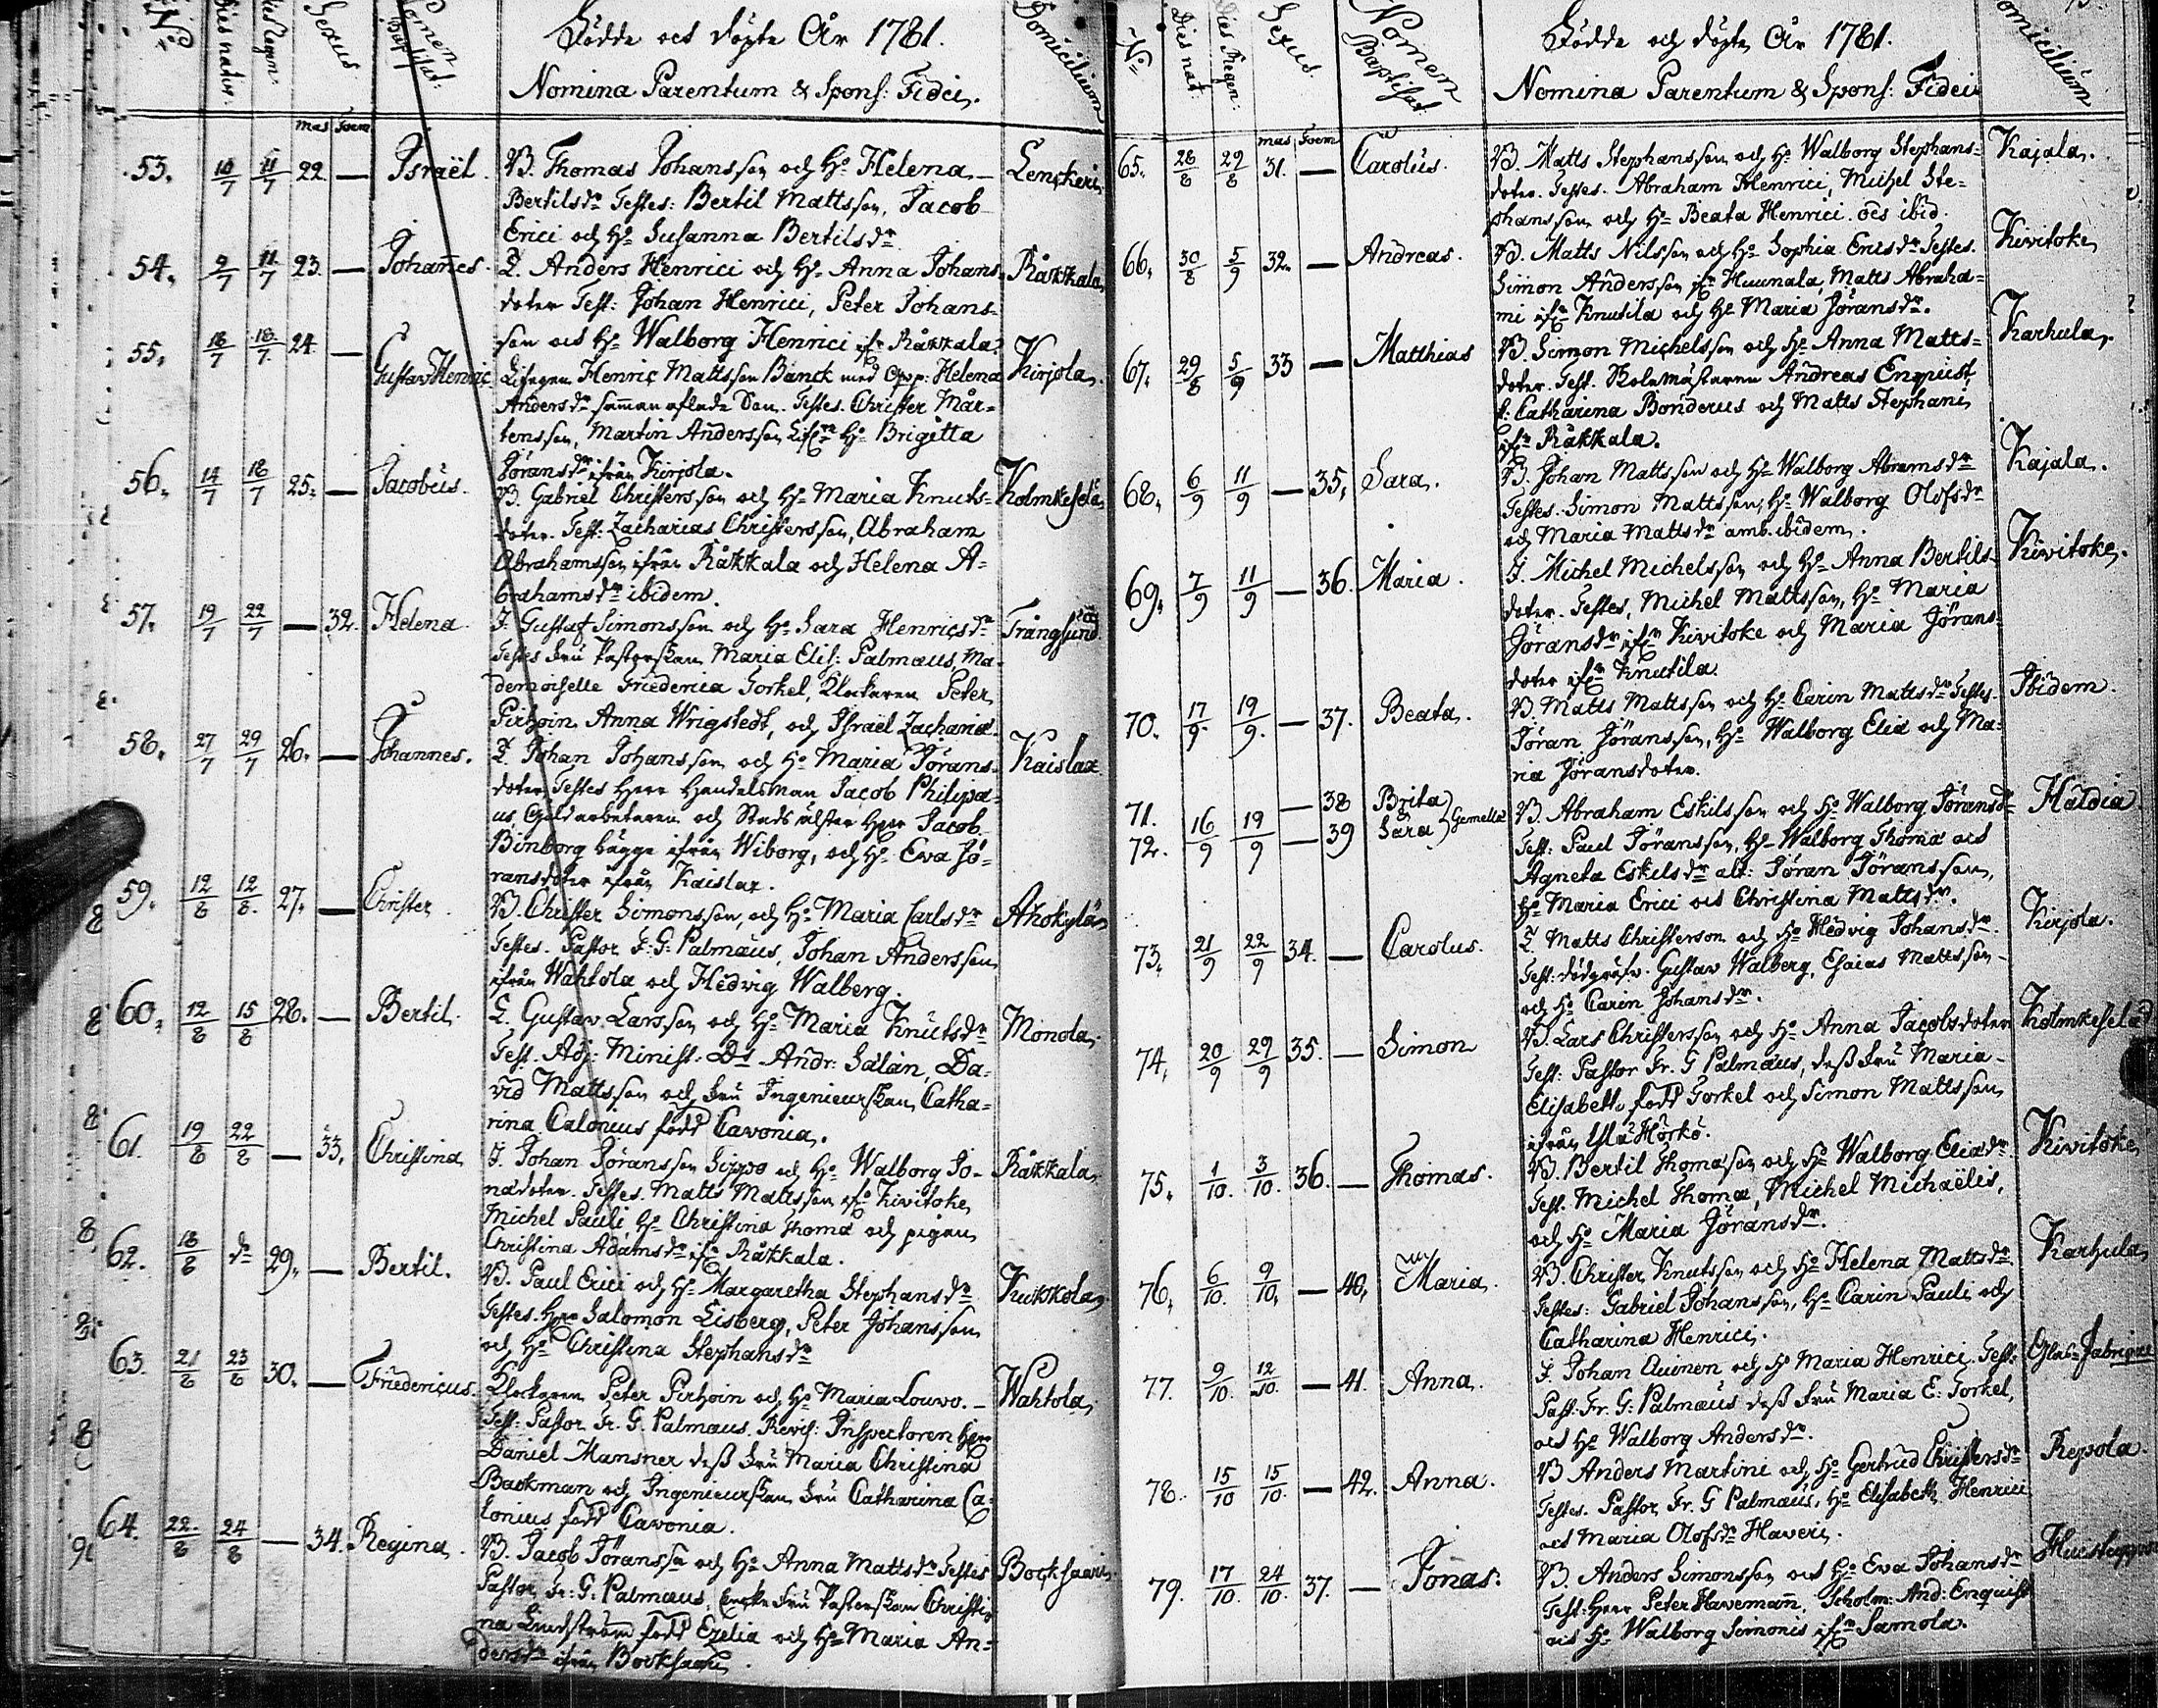 Födde och döpte År 1781.
N:o Dies natur: Dies Regen: Sexus Nomen Baptisat: Nomina Parentum & Spons: Fidei. Domicilium
mas Foem
53. 10/7 11/7 22. — Israël. B. Thomas Johansson och H: Helena Lenskeri
Bertilsdr Testes: Bertil Mattsson, Jacob
Erici och H: Susanna Bertilsdr
54. 9/7 11/7 23. — Johannes. T. Anders Henrici och H: Anna Johans- Råkkala
doter Test: Johan Henrici, Peter Johans-
son och H: Walborg Henrici ifr Råkkala.
55. 16/7 18/7 24. — Gustav Henric Henric Mattsson Banck med Helena Kirjola.
Andersdr samman aflade Son. Testes. Christer Mår-
tensson, Martin Andersson H: Brigitta
Jöransdr ifrån Kirjola.
56. 14/7 18/7 25. — Jacobus. B. Gabriel Christersson och H: Maria Knuts- Kolmkeselä
doter. Test: Zacharias Christersson, Abraham
Abrahamsson ifrån Råkkala och Helena A-
brahamsdr ibidem
57. 19/7 22/7 — 32. Helena. I. Gustaf Simonsson och H: Sara Henricsdr Trångsund
Testes Fru Pastorskan Maria Elis: Palmæus, Ma-
demoiselle Friederica Gorkel, Klockaren Peter
Pirhoin Anna Wrigstedt, och Israel Zachariæ.
58. 27/7 29/7 26. — Johannes. T. Johan Johansson och H: Maria Jörans- Kaislax
doter Testes Herr Handelsman Jacob Philipæ-
us Guldarbetaren och Stads älster Herr Jacob
Binborg bägge ifrån Wiborg, och H: Eva Jö-
ransdoter ifrån Kaislax.
59. 12/8 12/8. 27. — Christer. B. Christer Simonsson, och H: Maria Carlsdr Ahokylä
Testes. Pastor F: G: Palmæus, Johan Andersson
ifrån Wahtola och Hedvig Walberg.
60. 12/8 15/8 28. — Bertil. L. Gustav Larsson och H: Maria Knutsdr Monola.
Test. Adj: Minist. Ds Andr: Salän, Da-
vid Mattsson och Fru Ingenieurskan Catha-
rina Calonius född Cavonia.
61. 19/8 22/8 — 33. Christina I. Johan Jöransson Sippo och H: Walborg Jo- Råkkala.
nædoter. Testes. Matts Mattsson ifr Kivitoke,
Michel Pauli H: Christina Thomæ och pigan
Christina Adamsdr ifr Råkkala.
62. 18/8 do 29. — Bertil. B. Paul Erici och H: Margaretha Stephansdr Kukkola.
Testes. Herr Salomon Lisberg, Peter Johansson
och H: Christina Stephansdr
63. 21/8 23/8 30. — Friedericus. Klockaren Peter Pirhoin och H: Maria Louvo. Wahtola.
Test: Pastor Fr. G. Palmæus. Revis: Inspectoren Herr
Daniel Mansner dess Fru Maria Christina
Backman och Ingenieurskan Fru Catharina Ca-
lonius född Cavonia.
64. 22/8 24/8 — 34. Regina. B. Jacob Jöranss: och H: Anna Mattsdr Testes Bocksaari
Pastor Fr: G: Palmæus, Enke Fru Pastorskan Christi-
na Lindström född Ezelia och H: Maria An-
dersdr ifrån Bocksaari.
Födde och döpte År 1781.
N:o Dies nat: Dies Regen: Sexus. Nomen Baptisat: Nomina Parentum & Spons: Fidei Domicilium
mas Foem
65. 28/8 29/8 31. — Carolus. B. Matts Stephansson och H: Walborg Stephans- Kajala.
doter. Testes. Abraham Henrici, Michel Ste-
phansson och H: Beata Henrici. oēs ibid.
66. 30/8 5/9 32. — Andreas. B. Matts Nilsson och H: Sophia Ericsdr Testes. Kivitoke
Simon Andersson ifr Huunala, Matts Abraha-
mi ifr Knutila och H: Maria Jöransdr.
67. 29/8 5/9 33 — Matthias B. Simon Michelsson och H: Anna Matts- Karhula.
doter. Test. Skolemästaren Andreas Enquist,
H: Catharina Bonderus och Matts Stephani
ifr Råkkala.
68. 6/9 11/9 — 35. Sara. B. Johan Mattsson och H: Walborg Abramsdr Kajala.
Testes. Simon Mattsson, H: Walborg Olofsdr
och Maria Mattsdr amb. ibidem.
69. 7/9 11/9 — 36. Maria. I. Michel Michelsson och H: Anna Bertils- Kivitoke.
doter. Testes, Michel Mattsson, H: Maria
Jöransdr ifr Kivitoke och Maria Jörans-
doter ifr Knutila.
70. 17/9. 19/9. — 37. Beata. B. Matts Mattsson och H: Carin Mattsdr Testes. Ibidem.
Jöran Jöransson, H: Walborg Eliæ och Ma-
ria Jöransdoter.
71. — 38 Brita
72. 16/9 19/9 — 39 Sara Gemellæ B. Abraham Eskilsson och H: Walborg Jöransdr Haldia
Test: Paul Jöransson, H: Walborg Thomæ och
Agneta Eskilsdr alt: Jöran Jöransson,
H: Maria Erici och Christina Mattsdr.
73. 21/9 22/9 34. — Carolus. T. Matts Christerson och H: Hedvig Johansdr. Kirjola.
Test: Gustav Walberg, Esaias Mattsson
och H: Carin Johansdr.
74. 20/9 29/9 35. — Simon B. Lars Christersson och H: Anna Jacobsdoter Kolmkeselä
Test: Pastor Fr. G Palmæus, dess Fru Maria
Elisabeth född Gorkel och Simon Mattsson
ifrån Yllä Hörkö.
75. 1/10. 3/10. 36. — Thomas. B. Bertil Thomæson och H: Walborg Eliædr Kivitoke
Test. Michel Thomæ, Michel Michaëlis,
och H: Maria Jöransdr.
76. 6/10. 9/10. — 40. Maria. B. Christer Knutsson och H: Helena Mattsdr Karhula
Testes: Gabriel Johansson, H: Carin Pauli och
Catharina Henrici.
77. 9/10. 12/10. — 41. Anna. I. Johan Quinen och H: Maria Henrici. Test: Glas-Fabriquen
Past: Fr. G: Palmæus dess Fru Maria E: Gorkel,
och H: Walborg Andersdr.
78. 15/10 15/10. — 42. Anna. B Anders Martini och H: Gertrud Christersdr Repola.
Testes. Pastor Fr. G Palmæus, H: Elisabeth Henrici
och Maria Olofsdr Haveri.
79. 17/10. 24/10. 37. — Jonas. B. Anders Simonsson och H: Eva Johansdr
Test: Herr Peter Havemann, Scholm: And: Enquist
och H: Walborg Simonis ifr Samola.